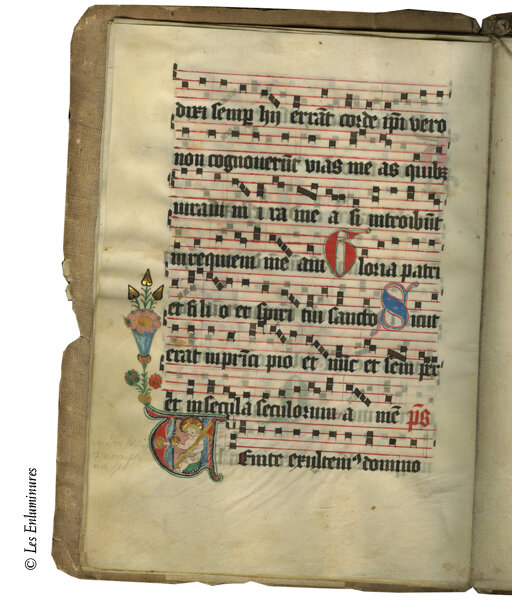 dixi semꝑ hij errāt corde ip̄i vero
non cognouerūt vias me as quibꝫ
iuraui in i ra me a si introibūt
in requiem me am Gloria patri
et fili o et spiri tui sancto Sicut
erat in prīci pio et nūc et sem per
et in secula seculorum a mē p̄s
Venite exultemꝰ domino
© Les Enluminures